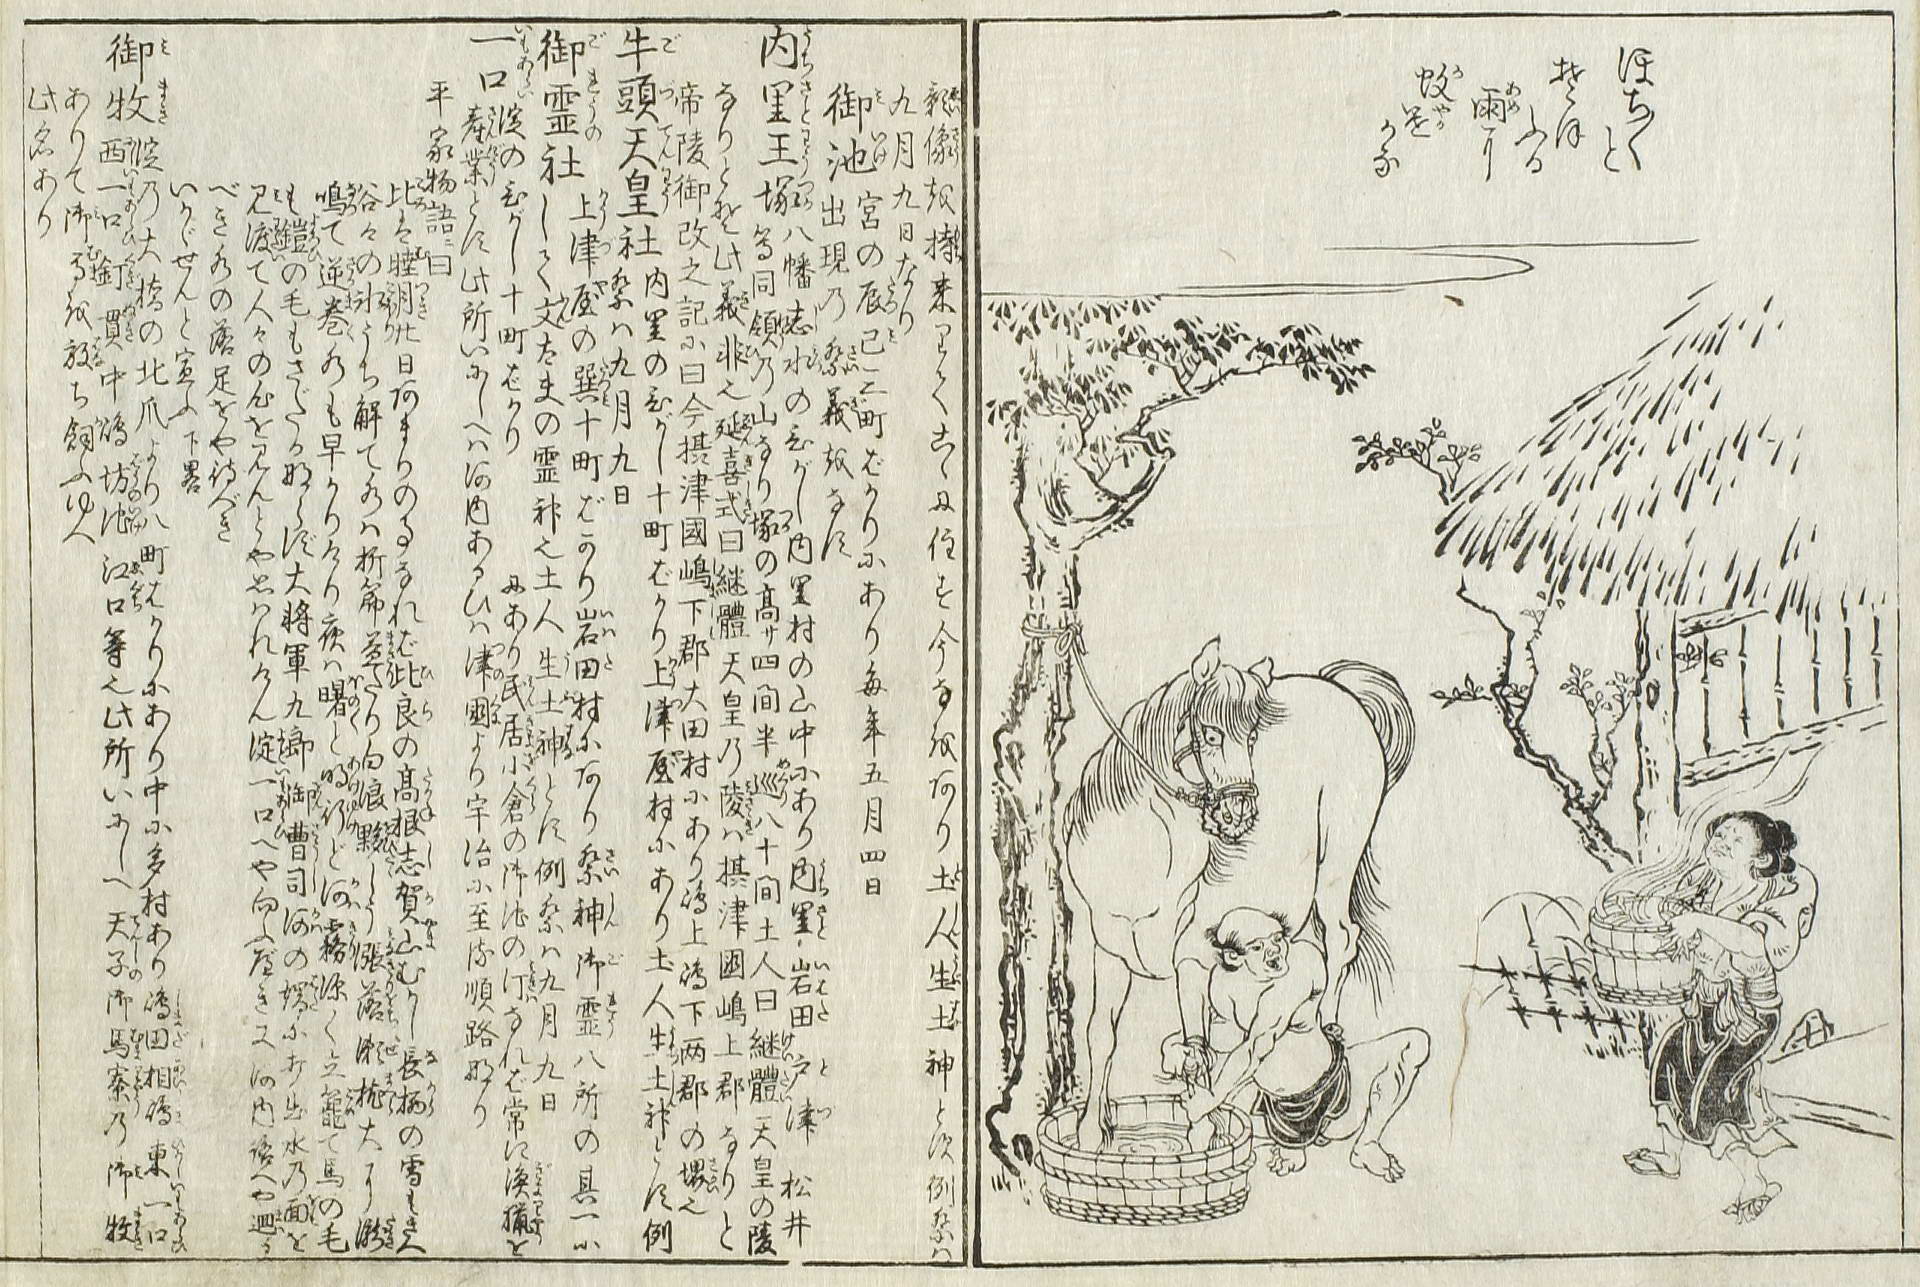 ほちゃ〳〵と
雨に
蚊遣
かな
九月九日なり
御池 宮の辰巳二町ばかりにあり毎年五月四日
御池出現の祭義をなす
内里王塚 八幡志水のひがし内里村の山中にあり内里岩田戸津松井
等同領の山なり塚の高サ四間半巡八十間土人曰継體天皇の陵
なりとぞ此義非也延喜式曰継體天皇乃陵ハ摂津國嶋上郡なりと
帝陵御改之記に曰今摂津國嶋下郡大田村にあり嶋上嶋下両郡の堺也
牛頭天皇社 内里のひがし十町ばかり上津屋村にあり土人生土神とす例
祭ハ九月九日
御霊社 上津屋の巽十町ばかり岩田村にあり祭神御霊八所の其一に
して文太夫の霊神也土人生土神とす例祭ハ九月九日
一口 淀のひがし十町ばかりにあり民居小倉の御池の汀なれば常に漁猟を
産業とす此所いにしへハ河内あるひハ津國より宇治に至る順路なり
平家物語ニ曰
比ハ睦月廿日あまりのことなれば比良の高根志賀山むかし長柄の雪もきえ
谷々の氷うち解て水ハ折節
鳴て逆巻水も早かりけり夜ハ曙と明行ど河霧深く立籠て馬の毛
も鎧の毛もさだかならず大将軍九郎御曹司河の端に打出水乃面を
見渡て人々の心を見んとや思ハれけん淀一口へや向ふべき又河内路へや廻る
べき水の落足をや待べき
いかゞせんと宣ふ下畧
御牧 淀乃大橋の北爪より八町ばかりにあり中に多村あり嶋田相嶋東一口
西一口釘貫中嶋坊池江口等也此所いにしへ天子御馬寮乃御牧
ありて御馬を放ち飼ふゆへ
此名あり